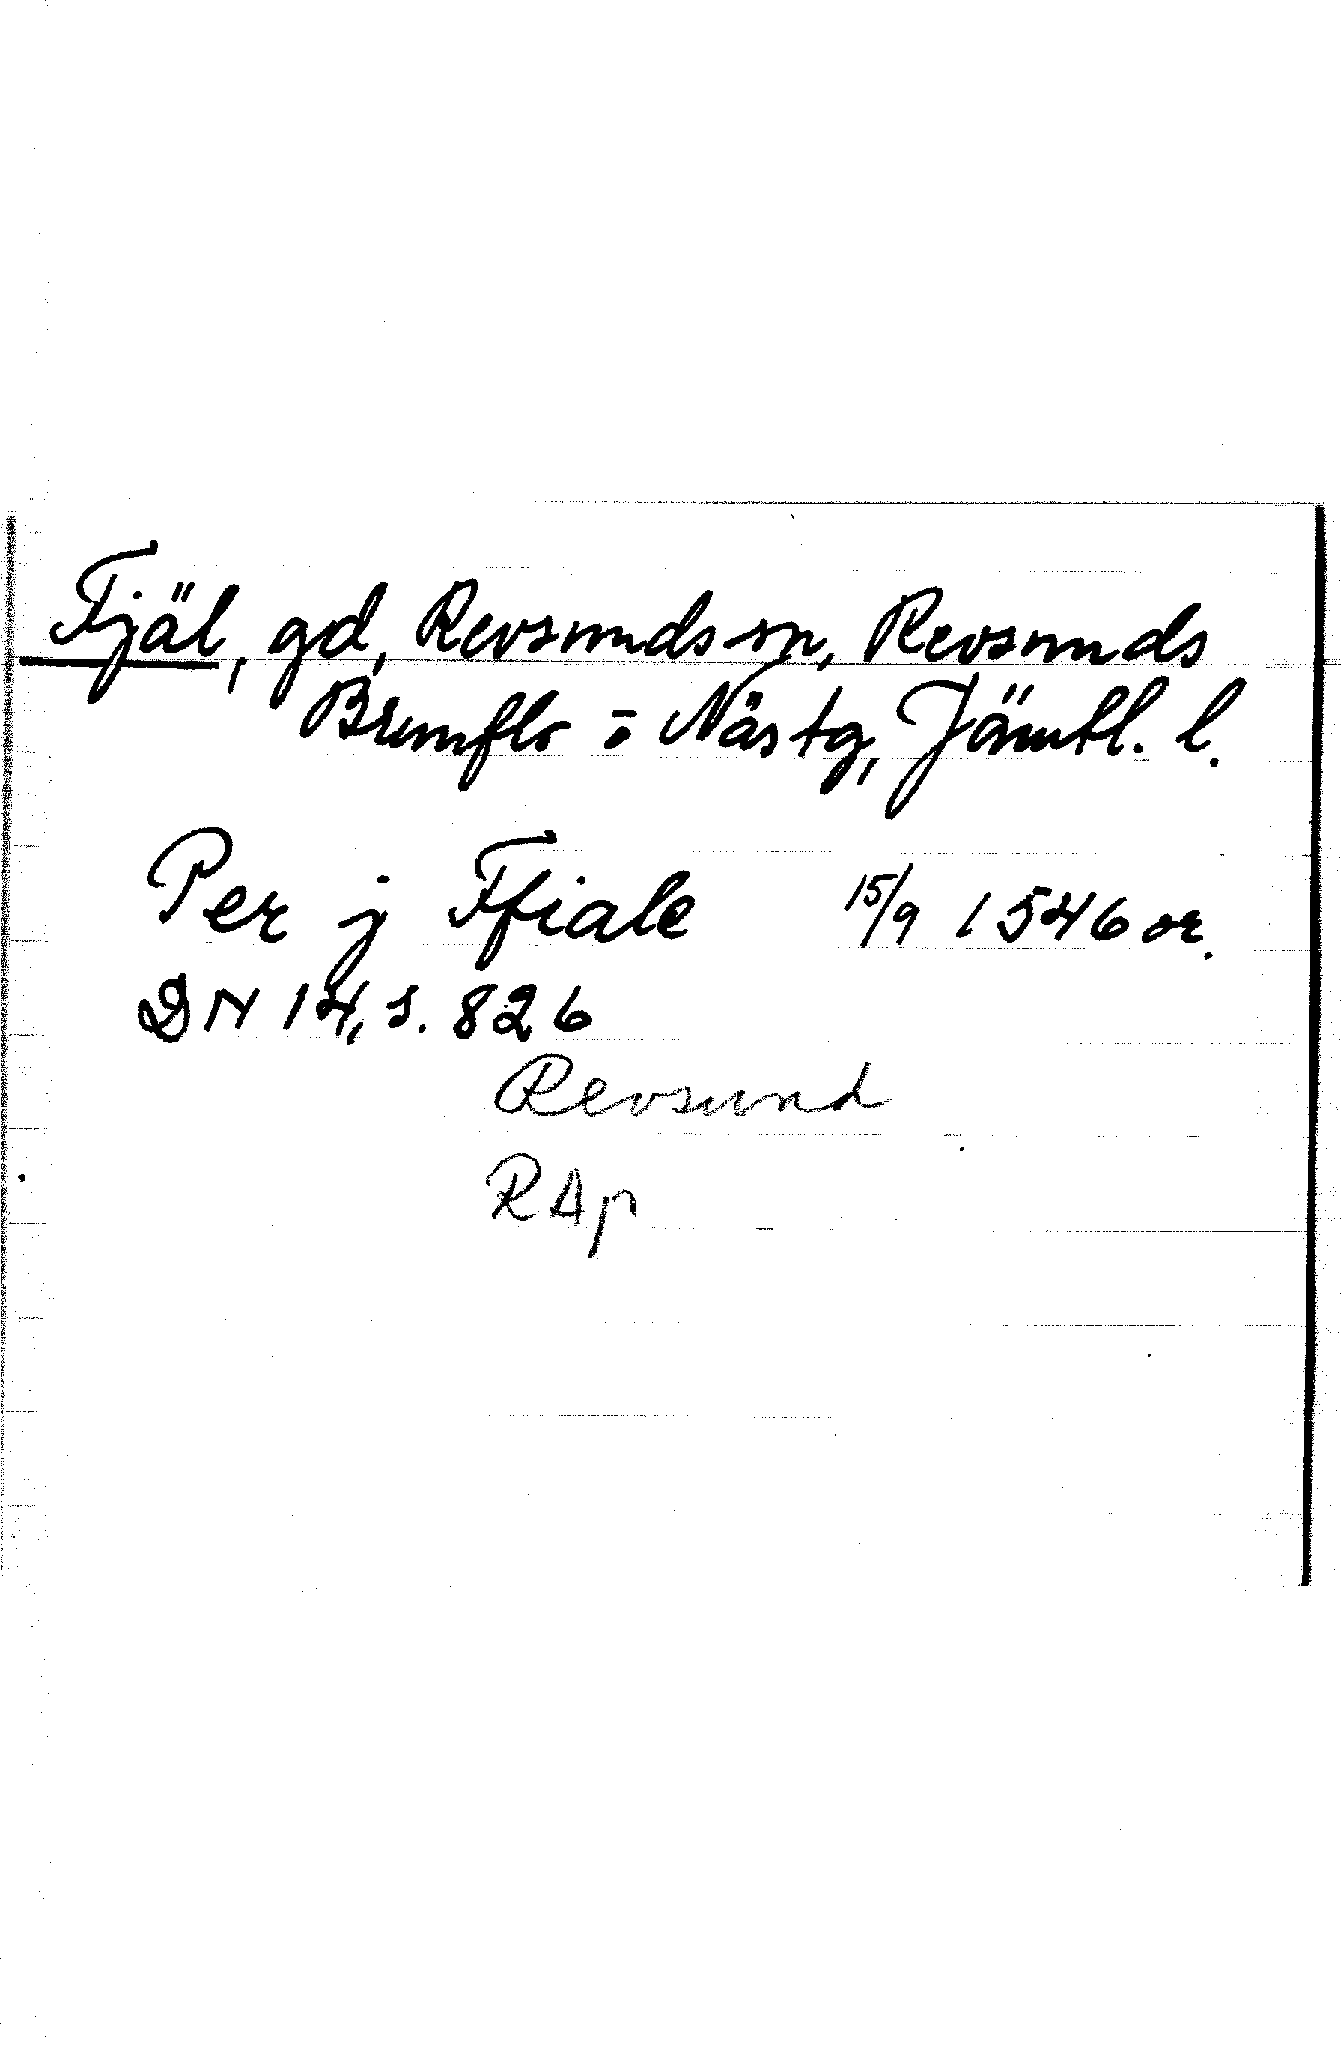 Fjäl, gd, Revsunds sn, Revsunds
Brunflo o Näs tg, Jämtl. l.
Per j Ffiale 15/9 1546 or.
DN 14, s. 826
Revsund
RAp